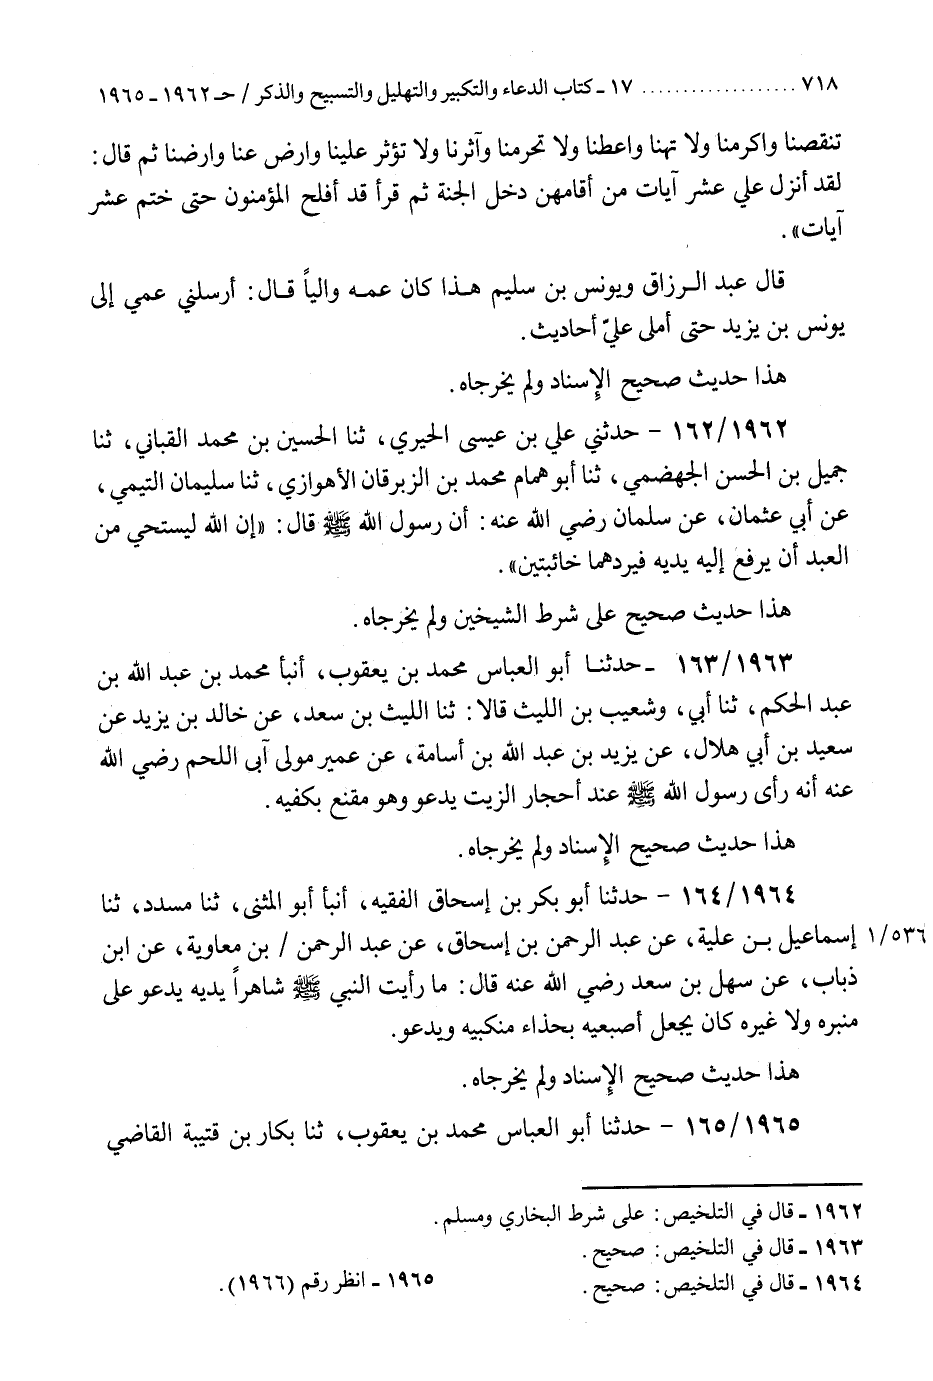 ٧١٨ .................... ١٧ ـ كتاب الدعاء والتكبير والتهليل والتسبيح والذكر / حـ ١٩٦٢ ـ ١٩٦٥
تنقصنا واكرمنا ولا تهنا واعطنا ولا تحرمنا وآثرنا ولا تؤثر علينا وارض عنا وارضنا ثم قال:
لقد أنزل علي عشر آيات من أقامهن دخل الجنة ثم قرأ قد أفلح المؤمنون حتى ختم عشر
آيات».
قال عبد الرزاق ويونس بن سليم هذا كان عمه والياً قال: أرسلني عمي إلى
يونس بن يزيد حتى أملى عليّ أحاديث.
هذا حديث صحيح الإسناد ولم يخرجاه.
١٦٢/١٩٦٢ - حدثني علي بن عيسى الحيري، ثنا الحسين بن محمد القباني، ثنا
جميل بن الحسن الجهضمي، ثنا أبو همام محمد بن الزبرقان الأهوازي، ثنا سليمان التيمي،
عن أبي عثمان، عن سلمان رضي الله عنه: أن رسول الله ﷺ قال: «إن الله ليستحي من
العبد أن يرفع إليه يديه فيردهما خائبتين».
هذا حديث صحيح على شرط الشيخين ولم يخرجاه.
١٦٣/١٩٦٣ ـ حدثنا أبو العباس محمد بن يعقوب، أنبأ محمد بن عبد الله بن
عبد الحكم، ثنا أبي، وشعيب بن الليث قالا: ثنا الليث بن سعد، عن خالد بن يزيد عن
سعيد بن أبي هلال، عن يزيد بن عبد الله بن أسامة، عن عمير مولى آبى اللحم رضي الله
عنه أنه رأى رسول الله ﷺ عند أحجار الزيت يدعو وهو مقنع بكفيه.
هذا حديث صحيح الإسناد ولم يخرجاه.
١٦٤/١٩٦٤ - حدثنا أبو بكر بن إسحاق الفقيه، أنبأ أبو المثنى، ثنا مسدد، ثنا
١/٥٣٦ إسماعيل بن علية، عن عبد الرحمن بن إسحاق، عن عبد الرحمن / بن معاوية، عن ابن
ذباب، عن سهل بن سعد رضي الله عنه قال: ما رأيت النبي ﷺ شاهراً يديه يدعو على
منبره ولا غيره كان يجعل أصبعيه بحذاء منكبيه ويدعو.
هذا حديث صحيح الإسناد ولم يخرجاه.
١٦٥/١٩٦٥ - حدثنا أبو العباس محمد بن يعقوب، ثنا بكار بن قتيبة القاضي
١٩٦٢ ـ قال في التلخيص: على شرط البخاري ومسلم.
١٩٦٣ ـ قال في التلخيص: صحيح.
١٩٦٤ ـ قال في التلخيص: صحيح.
١٩٦٥ ـ انظر رقم (١٩٦٦).